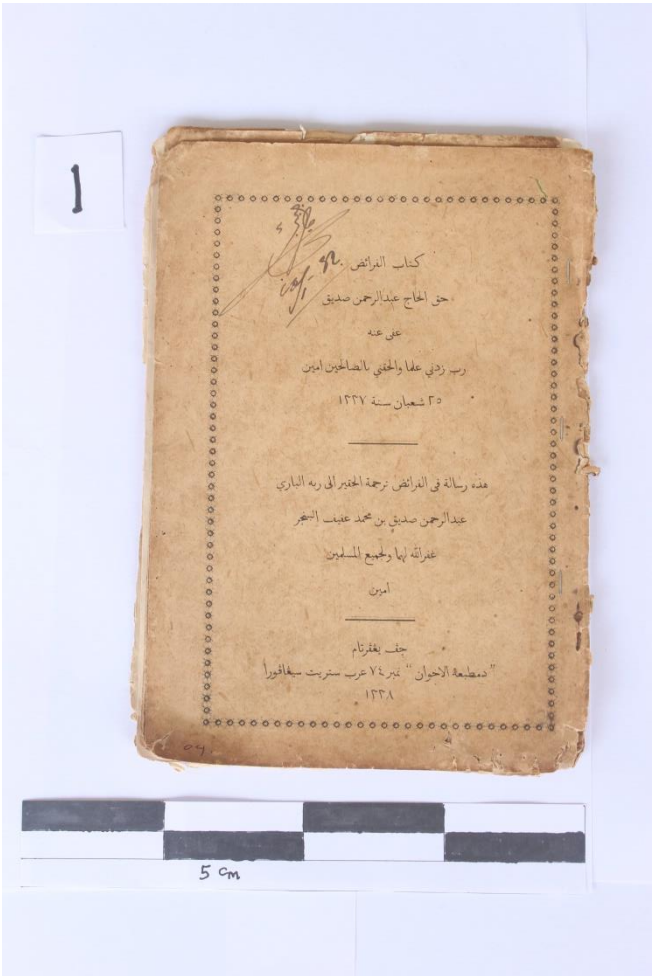 1
كتاب الفرائض
حق الحاج عبدالرحمن صديق
عفى عنه
رب زدني علما والحقني بالصالحين امين
٢٥ شعبان سنة ١٣٣٧
هذه رسالة فى الفرائض ترجمة الحقير الى ربه الباري
عبدالرحمن صديق بن محمد عفيف البنجر
غفرالله لهما ولجميع المسلمين
امين
جف يڠفرتام
"دمطبعة الاخوان" نمبر ٧٤ عرب ستريت سيڠافورا
١٣٣٨
5 cm